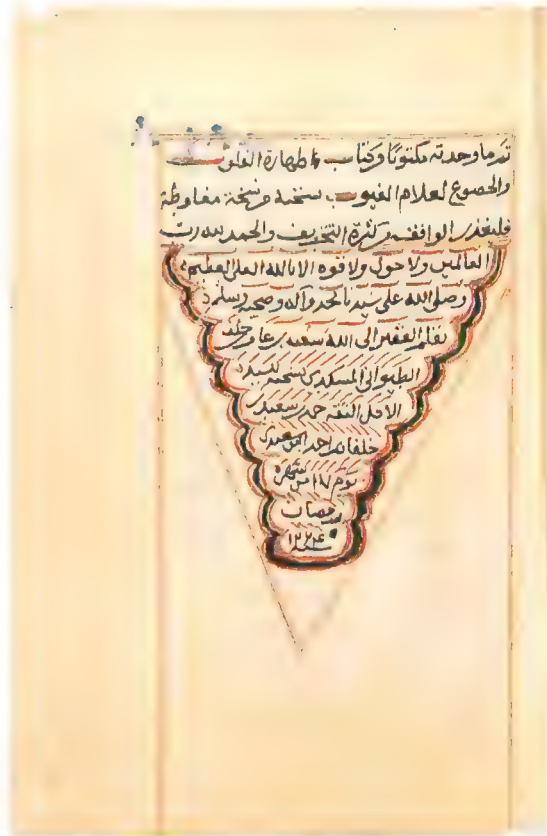 تم ما وجدته مكتوبا من كتاب طهارة القلوب
والخضوع لعلام الغيوب نسخته من نسخة مغلوطة
فليعذر الواقف من كثرة التحريف والحمد لله رب
العالمين ولا حول ولا قوة الا بالله العلي العظيم
وصلى الله على سيدنا محمد وآله وصحبه وسلم
بقلم الفقير الى الله سعيد بن عامر بن خلف
الطيواني المسكدي نسخته لسيده
الاجل الثقة حمد بن سعيد بن
خلفان بن احمد البوسعيدي
يوم ١٧ من شهر
رمضان
سنة ١٢٢٤